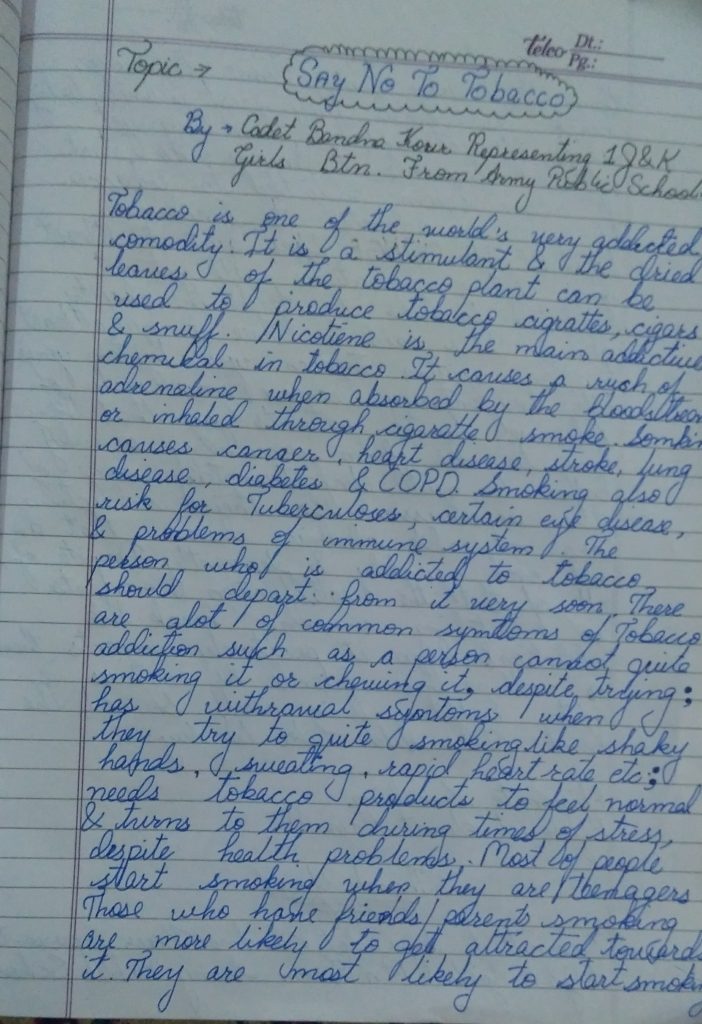 teleo Dt.:
Pg.:
Topic → Say No To Tobacco
By → Cadet Bandna Kour Representing 1 J&K
Girls Btn. From Army Public School
Tobacco is one of the world's very addicted
comodity. It is a stimulant & the dried
leaves of the tobacco plant can be
used to produce tobacco cigrattes, cigars
& snuff. Nicotiene is the main addictive
chemical in tobacco. It causes a rush of
adrenaline when absorbed by the bloodstream
or inhaled through cigaratte smoke. Somkin
causes cancer, heart disease, stroke, lung
disease, diabetes & COPD. Smoking also
risk for Tuberculoses, certain eye disease,
& problems of immune system. The
person who is addicted to tobacco
should depart from it very soon. There
are alot of common symtoms of Tobacco
addiction such as a person cannot quite
smoking it or chewing it, despite trying;
has withrawal symtoms when
they try to quite smoking like shaky
hands, sweating, rapid heart rate etc;
needs tobacco products to feel normal
& turns to them during times of stress,
despite health problems. Most of people
start smoking when they are teenagers
Those who have friends/parents smoking
are more likely to get attracted towards
it. They are most likely to start smoking